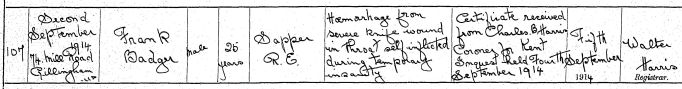 107
Second
September
1914
74. Mill Road
Gillingham
U.D.
Frank
Badger
male
26
years
Sapper
R.E.
Hemorrhage from
severe knife wound
in throat self inflicted
during temporary
insanity
Certificate received
from Charles B Harris
Coroner for Kent
Inquest held Fourth
September 1914
Fifth
September
1914
Walter
Harris
Registrar.